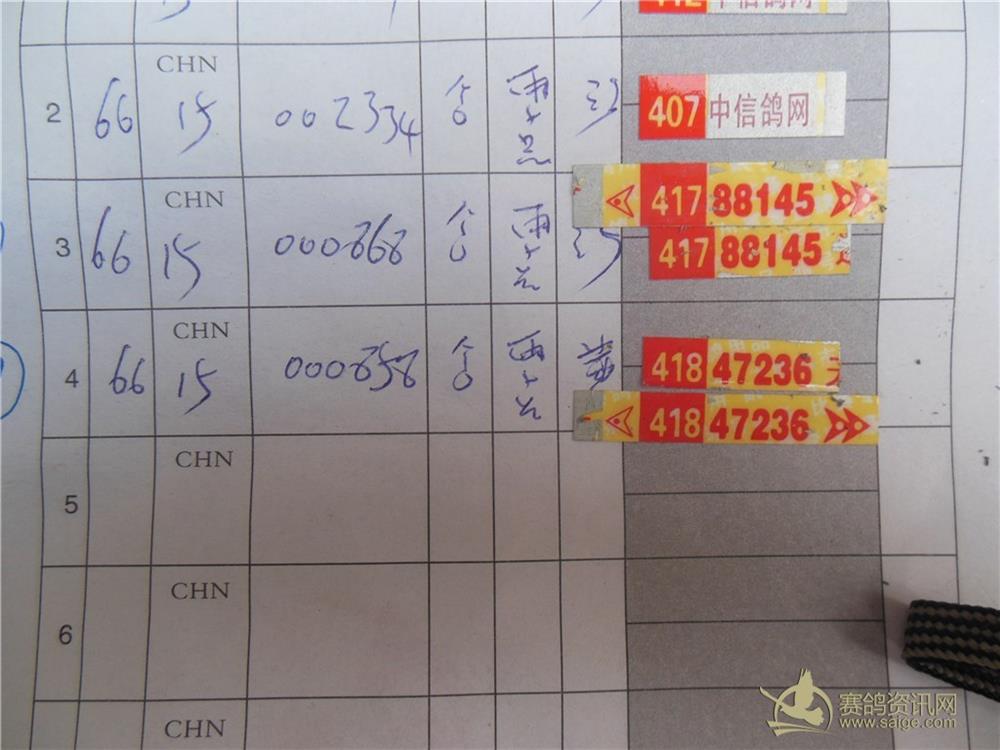 412 中信鸽网
CHN
2 66 15 002334 合 雨十点 407 中信鸽网
CHN
417 88145
3 66 15 000868 合 雨十 417 88145
CHN
4 66 15 000858 合 雨十 418 47236
418 47236
CHN
5
CHN
6
CHN
赛鸽资讯网
www.saige.com